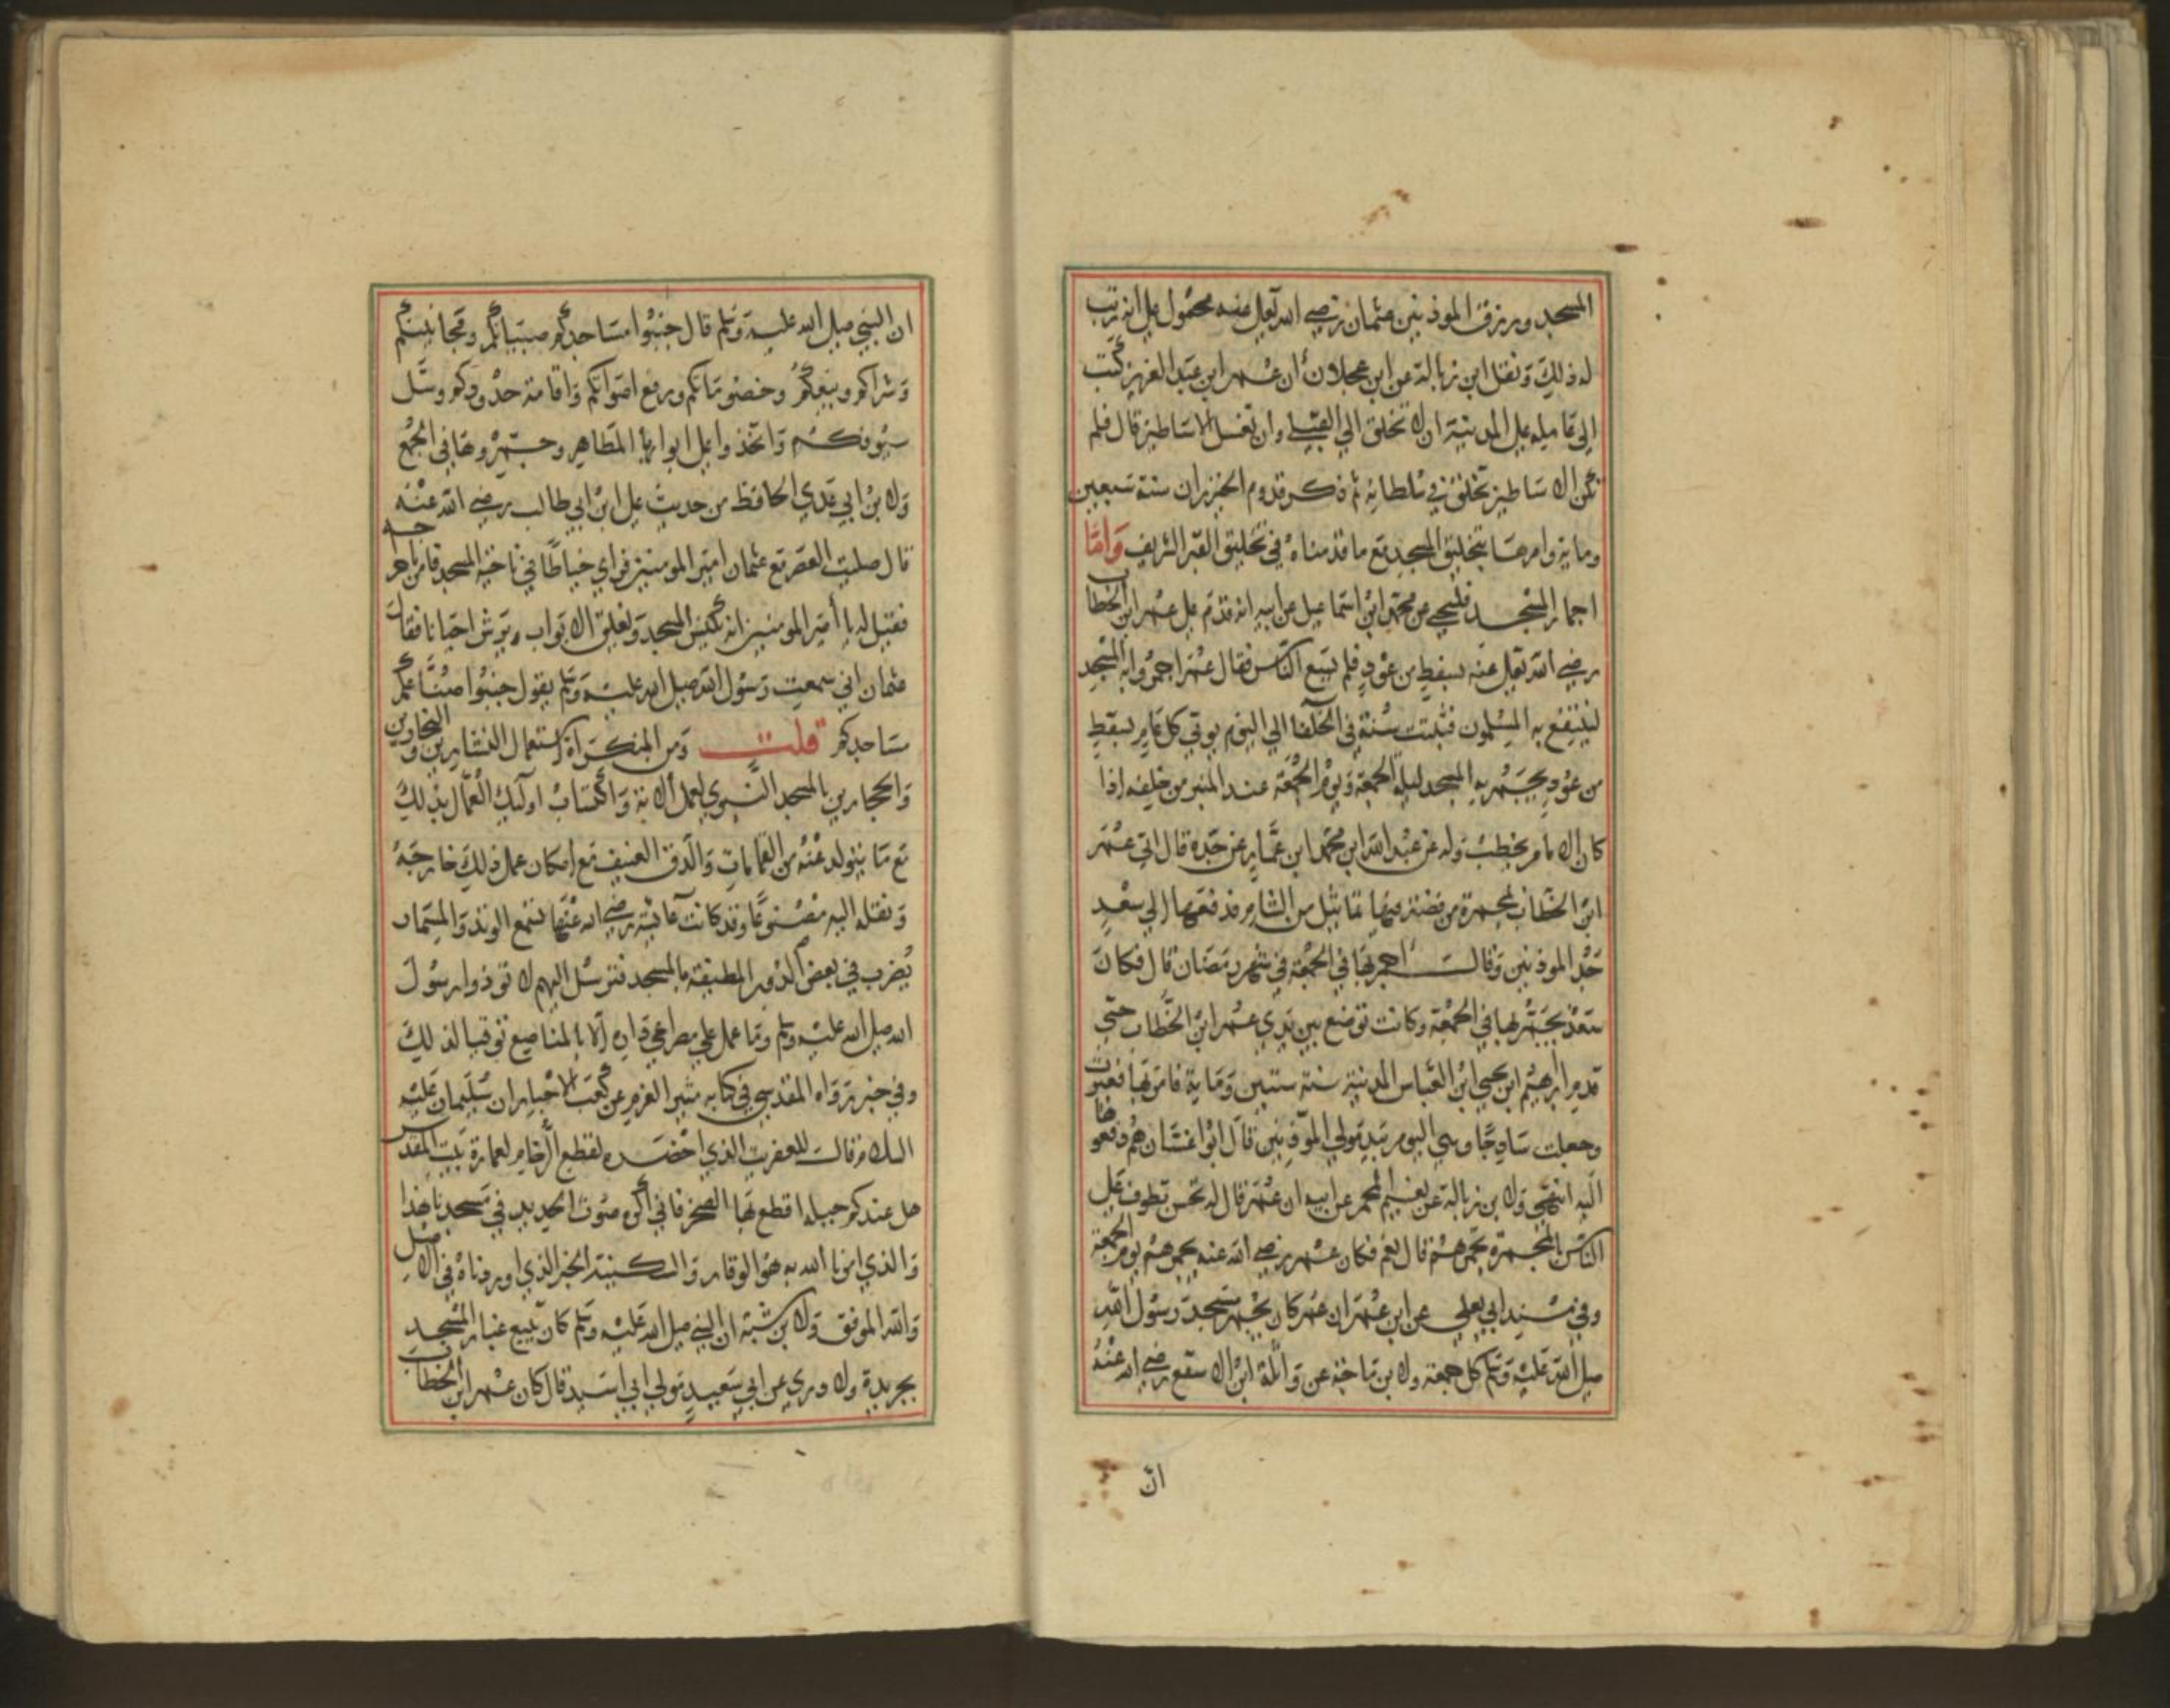 المسجد ورزق الموذنين عثمان رضي الله تعالى عنه محمول على انه رتب
له ذلك ونقل ابن زبالة عن ابن عجلان أن عمر ابن عبد العزيز كتب
الى عامله على المدينة ان لا تخلق الي القبلة وان تغسل الاساطين قال فلم
تكن الاساطين تخلق في سلطانه ثم ذكر قدوم الخيزران سنة سبعين
وماية وامرها بتخليق المسجد مع ما قدمناه في تخليق القبر الشريف واما
اجمار المسجد فليحي عن محمد ابن اسماعيل عن ابيه انه قدم على عمر ابن الخطاب
رضي الله تعالى عنه بسفط من عود فلم يسع الناس فقال عمر اجمروا به المسجد
لينتفع به المسلمون فثبتت سنة في الخلفا الي اليوم يوتي كل عام بسفط
من عود يجمر به المسجد ليلة الجمعة ويوم الجمعة عند المنبر من خلفه اذا
كان الامام يخطب وله عن عبد الله ابن محمد ابن عمار عن جده قال اتي عمر
ابن الخطاب بمجمرة من فضة فيها تماثيل من الشام فدفعها الي سعد
جد الموذنين وقال اجمر بها في الجمعة في شهر رمضان قال فكان
سعد يجمر بها في الجمعة وكانت توضع بين يدي عمر ابن الخطاب حتي
قدم ابرهيم ابن يحيي ابن العباس المدينة سنة ستين وماية فامر بها فغيرت
وجعلت ساذجا وهي اليوم بيد مولي الموذنين قال ابوا غسان هم دفعوها
اليه انتهي ولابن زبالة عن نعيم المجمر عن ابيه ان عمر قال له تحسن تطوف على
الناس بالمجمرة تجمرهم قال نعم فكان عمر رضي الله عنه يجمرهم يوم الجمعة
وفي مسند ابي يعلي عن ابن عمر ان عمر كان يجمر مسجد رسول الله
صلى الله عليه وسلم كل جمعة ولابن ماجه عن واثلة ابن الاسقع رضي الله عنه
ان
ان النبي صلى الله عليه وسلم قال جنبوا مساجدكم صبيانكم ومجانينكم
وشراكم وبيعكم وخصوماتكم ورفع اصواتكم واقامة حدودكم وسل
سيوفكم واتخذوا على ابوابها المطاهر وجمروها في الجمع
ولابن ابي عدي الحافظ من حديث علي ابن ابي طالب رضي الله عنه
قال صليت العصر مع عثمان امير المومنين فراي خياطا في ناحية المسجد فامر باخراجه
فقيل له يا أمير المومنين انه يكنس المسجد ويغلق الابواب ويرش احيانا فقال
عثمان اني سمعت رسول الله صلى الله عليه وسلم يقول جنبوا صناعكم
مساجدكم قلت ومن المنكرات استعمال النشارين والنجارين
والحجارين بالمسجد النبوي لعمل الاته واكتساب اولئك العمال بذلك
مع ما يتولد عنه من القمامات والدق العنيف مع امكان عمل ذلك خارجه
ونقله اليه مصنوعا وقد كانت عائشة رضي الله عنها تسمع الوتد والمسمار
يضرب في بعض الدور المطيفة بالمسجد فترسل اليهم لا توذوا رسول
الله صلى الله عليه وسلم وما عمل علي مصراعي داره الا بالمناصع توقيا لذلك
وفي خبر رواه المقدسي في كتابه مثير الغرام عن كعب الاحبار ان سليمان عليه
السلام قال للعفريت الذي احضره لقطع الرخام لعمارة بيت المقدس
هل عندكم حيلة اقطع بها الصخر فاني أكره صوت الحديد في مسجدنا هذا
والذي امرنا الله به هو الوقار والسكينة الخبر الذي اوردناه في الاصل
والله الموفق ولابن شبة ان النبي صلى الله عليه وسلم كان يتبع غبار المسجد
بجريدة ولاوري عن ابي سعيد مولي ابي اسيد قال كان عمر ابن الخطاب